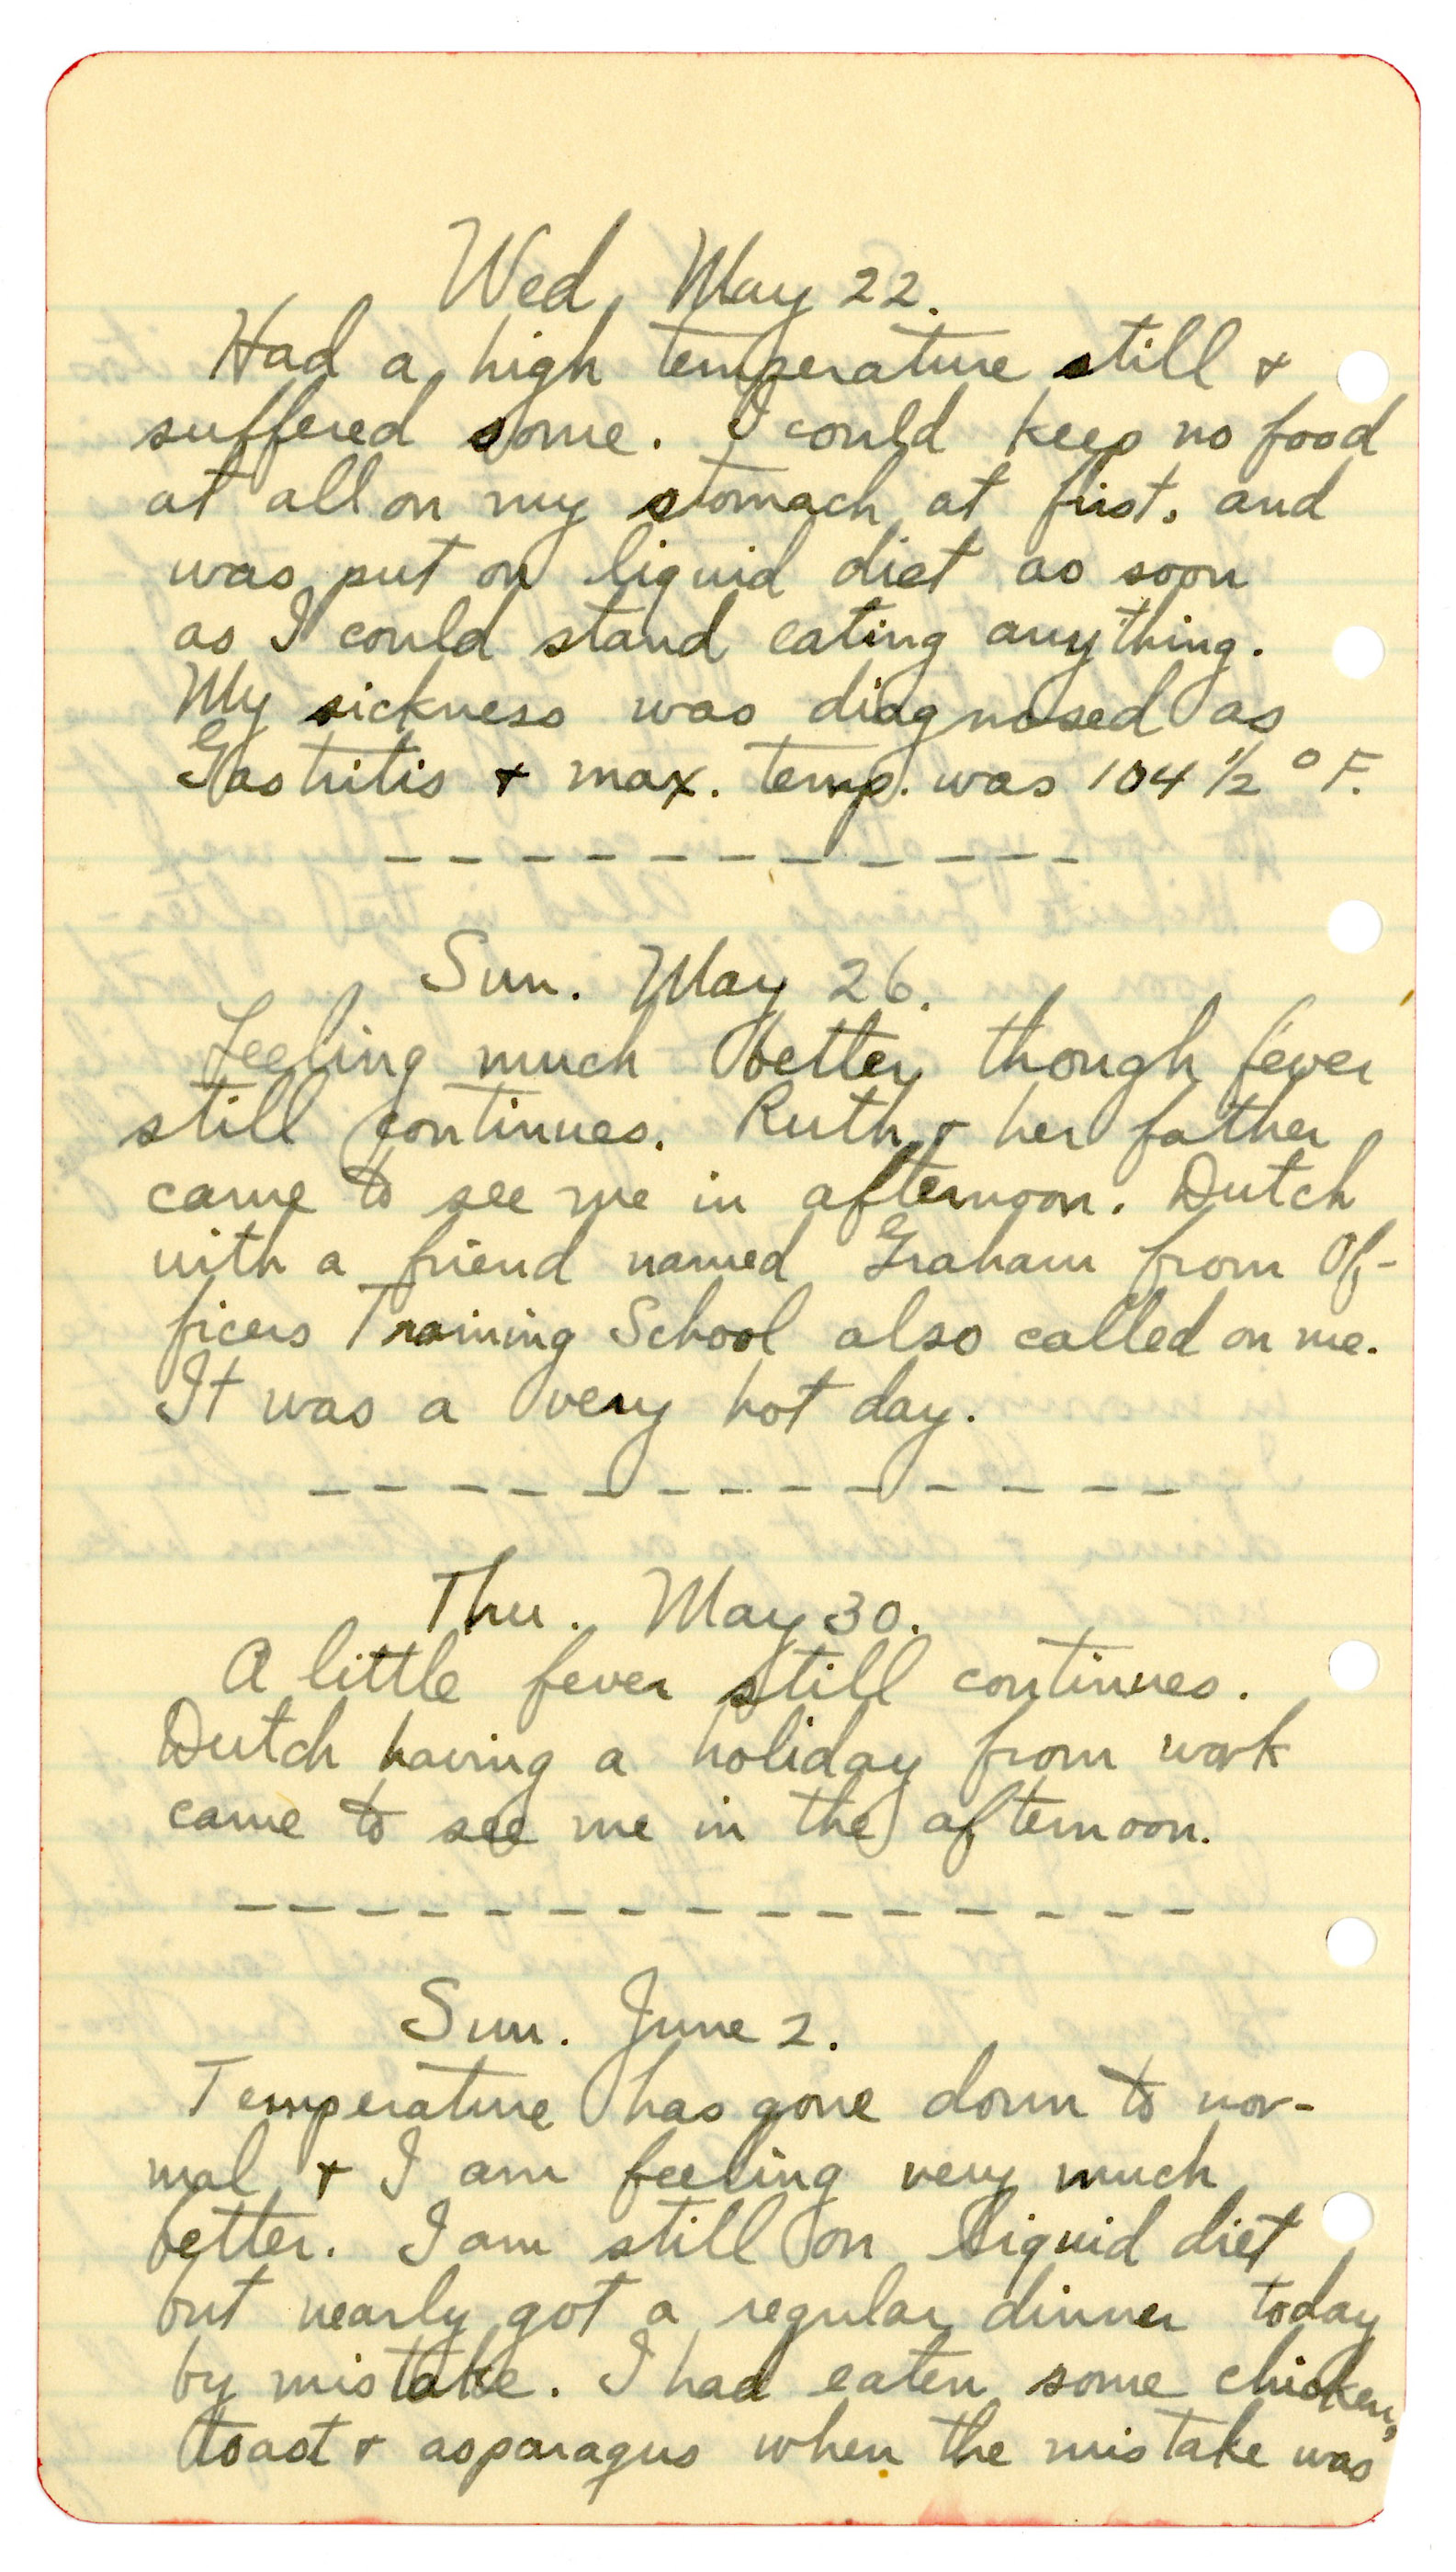 Wed, May 22.
Had a high temperature still &
suffered some. I could keep no food
at all on my stomach at first. and
was put on liquid diet as soon
as I could stand eating anything.
My sickness was diagnosed as
Gastritis & max. temp. was 104 1/2 ° F.
Sun. May 26.
Feeling much better though fever
still continues. Ruth & her father
came to see me in afternoon. Dutch
with a friend named Graham from Of-
ficers Training School also called on me.
It was a very hot day.
Thu. May 30.
A little fever still continues.
Dutch having a holiday from work
came to see me in the afternoon.
Sun. June 2.
Temperature has gone down to nor-
mal & I am feeling very much
better. I am still on liquid diet
but nearly got a regular dinner today
by mistake. I had eaten some chicken,
toast & asparagus when the mistake was